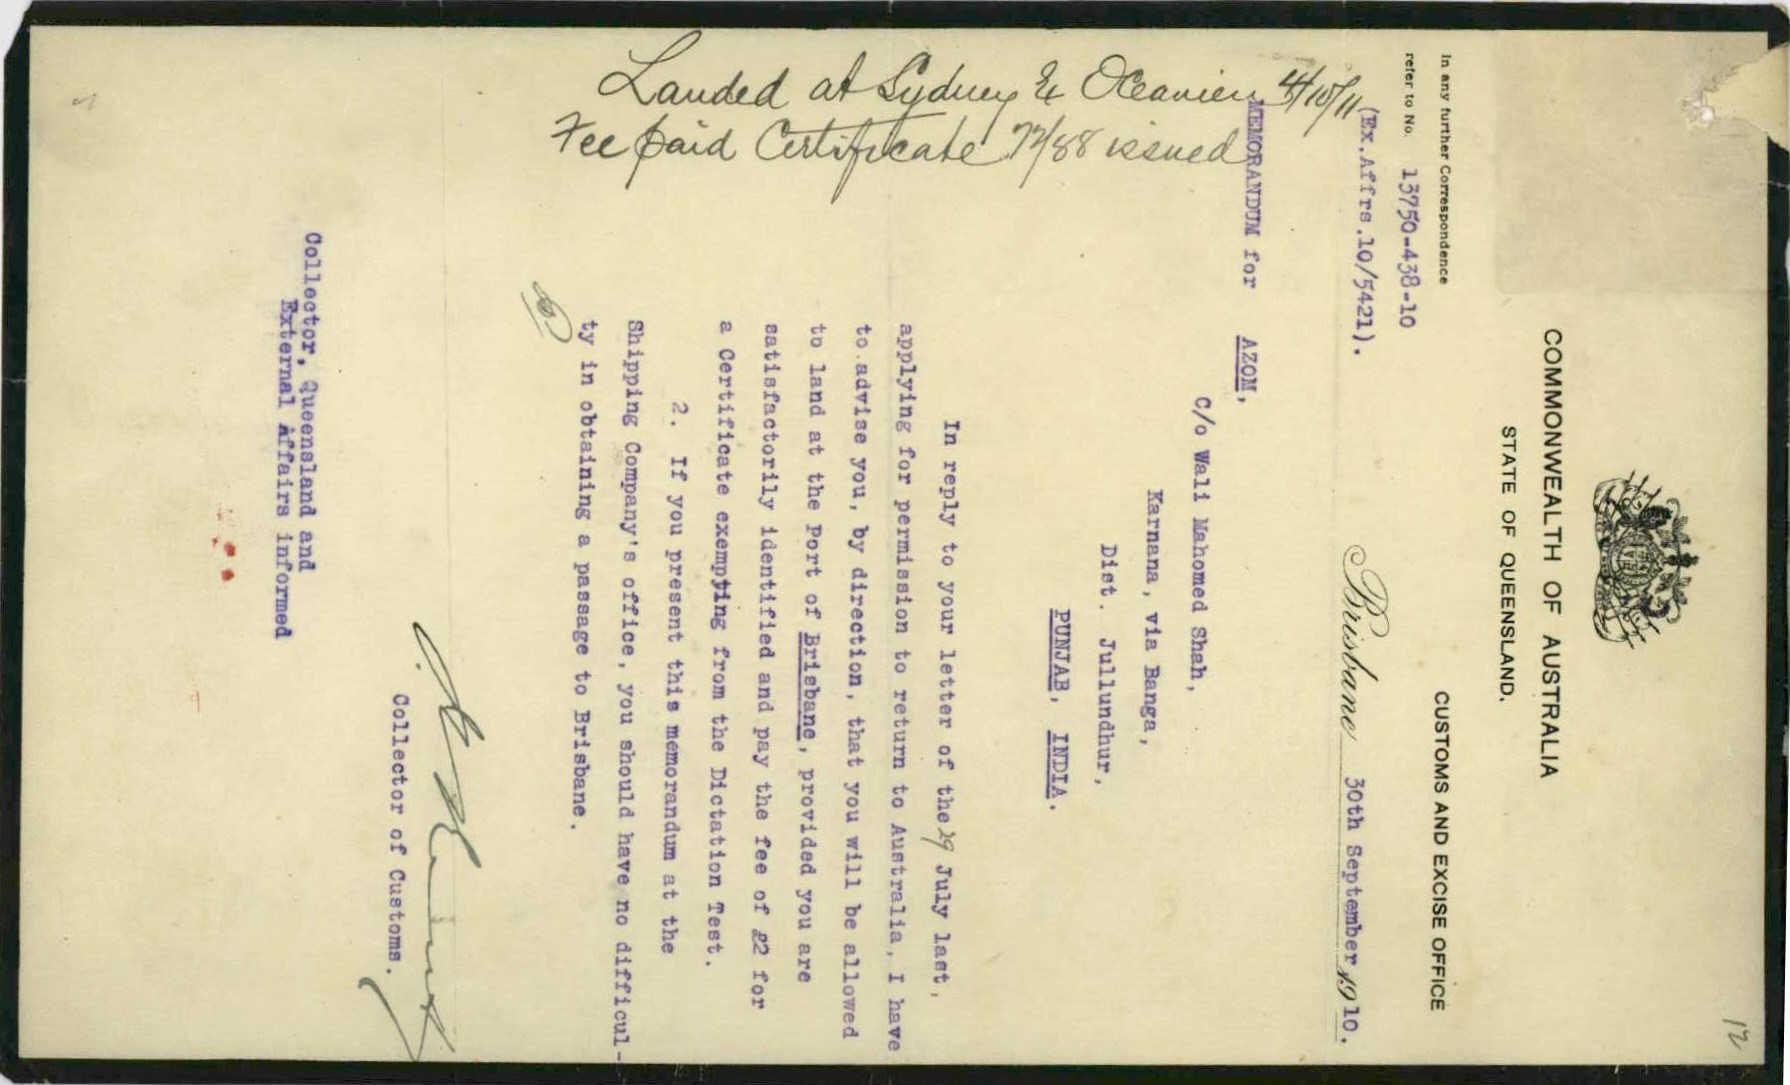 12
COMMONWEALTH OF AUSTRALIA
STATE OF QUEENSLAND.
In any further Correspondence
refer to No. 13750-438-10
CUSTOMS AND EXCISE OFFICE
(Ex.Affrs.10/5421).
Brisbane 30th September 1910.
MEMORANDUM for AZOM,
C/o Wali Mahomed Shah,
Karnana, via Banga,
Dist. Jullundhur,
PUNJAB, INDIA.
In reply to your letter of the 29 July last,
applying for permission to return to Australia, I have
to advise you, by direction, that you will be allowed
to land at the Port of Brisbane, provided you are
satisfactorily identified and pay the fee of £2 for
a Certificate exempting from the Dictation Test.
2. If you present this memorandum at the
Shipping Company's office, you should have no difficul-
ty in obtaining a passage to Brisbane.
Collector of Customs.
Collector, Queensland and
External Affairs informed
Landed at Sydney Ex Oceanien 4/10/11
Fee paid Certificate 72/88 issued